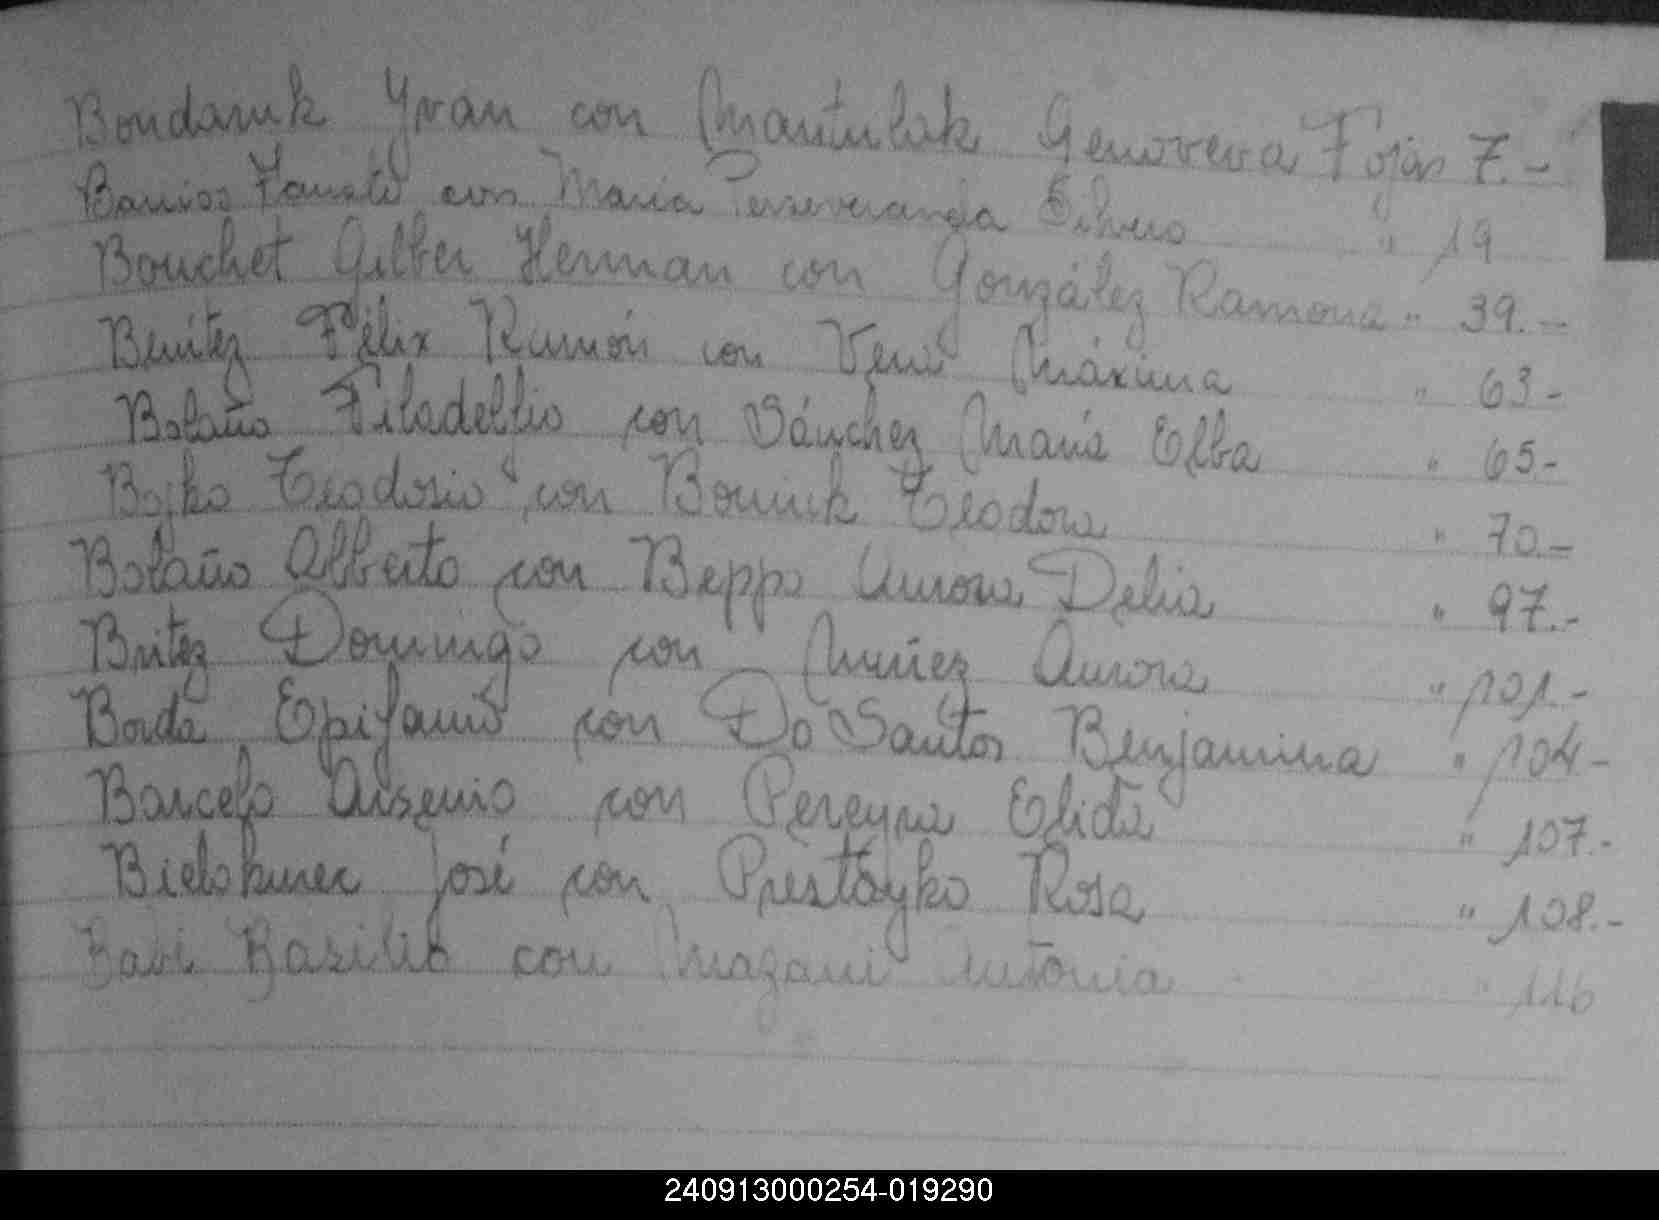 Bondaruk Yvan con Mantulak Genoveva Fojas 7.-
Barrios Fausto con María Perseveranda Silvero " 19
Bouchet Gilber Herman con González Ramona " 39.-
Benítez Félix Ramón con Vera Máxima " 63-
Bolaño Filadelfio con Sánchez María Elba " 65.-
Bojko Teodosio con Boniuk Teodora " 70.-
Bolaño Alberto con Beppo Aurora Delia " 97.-
Britez Domingo con Muñez Aurora " 101.-
Borda Epifanio con Do Santos Benjamina " 104-
Barcelo Arsenio con Pereyra Elida " 107.-
Bielokurec José con Prestayko Rosa " 108.-
Basilio con Antonia " 116
240913000254-019290